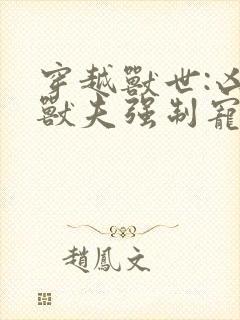 穿越獸世:凶
獸夫强制寵
趙鳳文